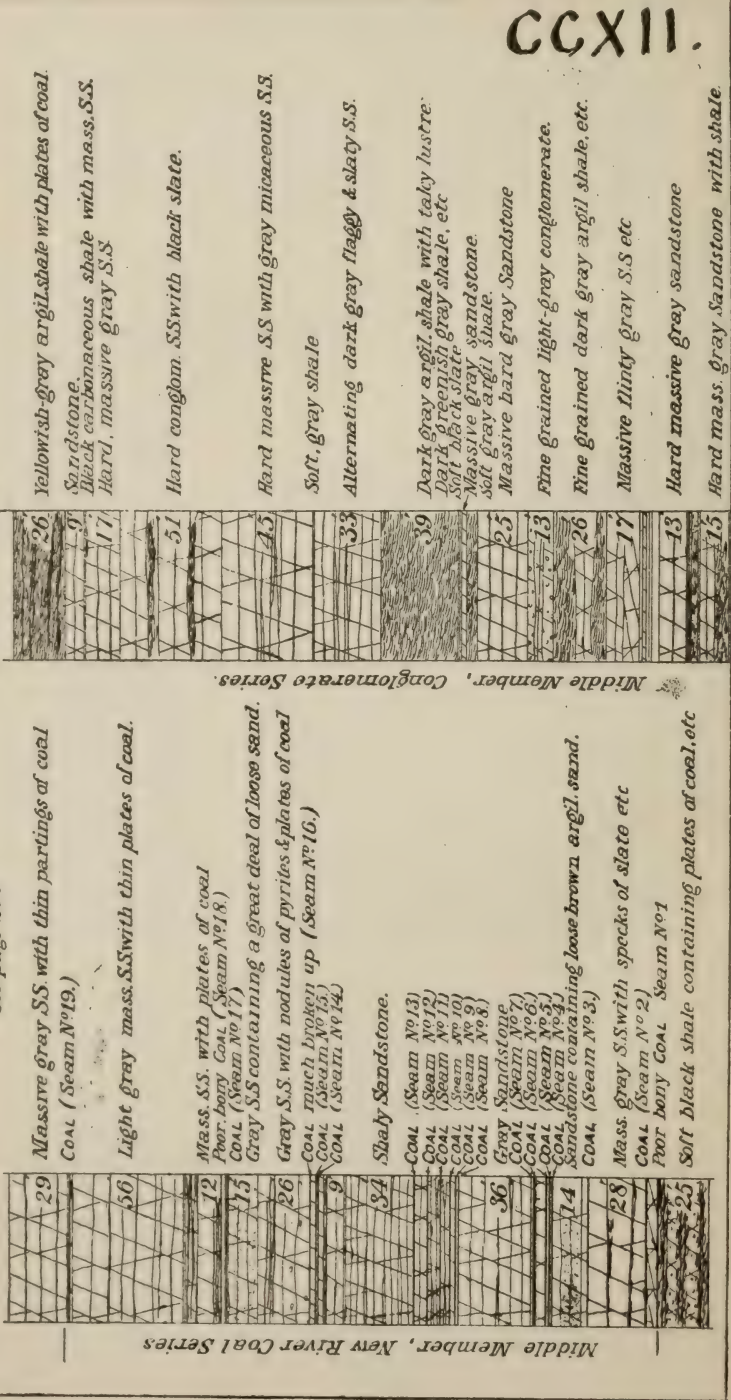 CCXII.
29
Massive gray S.S. with thin partings of coal
COAL (Seam Nº19.)
56
Light gray mass. S.S with thin plates of coal.
12
Mass. S.S. with plates of coal
Poor. bony COAL (Seam Nº18.)
COAL (Seam Nº17)
15
Gray S.S containing a great deal of loose sand.
26
Gray S.S. with nodules of pyrites & plates of coal
COAL much broken up (Seam Nº16.)
COAL (Seam Nº15.)
COAL (Seam Nº14.)
9
34
Shaly Sandstone.
COAL (Seam Nº13)
COAL (Seam Nº12)
COAL (Seam Nº11)
COAL (Seam Nº10)
COAL (Seam Nº9)
COAL (Seam Nº8.)
36
Gray Sandstone
COAL (Seam Nº7.)
COAL (Seam Nº6.)
COAL (Seam Nº5.)
COAL (Seam Nº4.)
14
Sandstone containing loose brown argil. sand.
COAL (Seam Nº3.)
28
Mass. gray S.S. with specks of slate etc
COAL (Seam Nº2)
Poor bony COAL Seam Nº1
25
Soft black shale containing plates of coal, etc
Middle Member, New River Coal Series
26
Yellowish-gray argil. shale with plates of coal.
9
Sandstone.
Black carbonaceous shale with mass. S.S.
17
Hard, massive gray S.S
51
Hard conglom. S.S with black slate.
45
Hard massive S.S with gray micaceous S.S.
Soft, gray shale
33
Alternating dark gray flaggy & slaty S.S.
39
Dark gray argil. shale with talcy lustre.
Dark greenish gray shale, etc
Soft black slate
Massive gray sandstone.
Soft gray argil shale.
25
Massive hard gray Sandstone
13
Fine grained light-gray conglomerate.
26
Fine grained dark gray argil shale, etc.
17
Massive flinty gray S.S etc
13
Hard massive gray sandstone
15
Hard mass. gray Sandstone with shale.
Middle Member, Conglomerate Series.